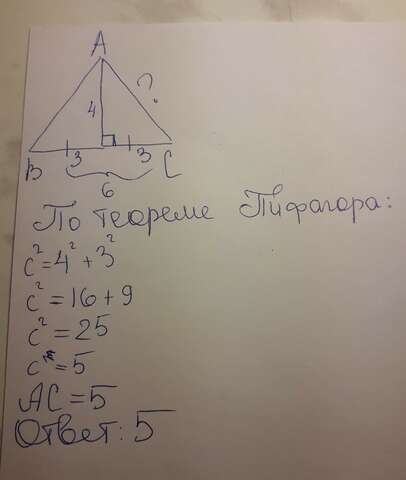 A
4 ?
B 3 3 C
6
По теореме Пифагора:
c²=4²+3²
c²=16+9
c²=25
c=5
AC=5
Ответ: 5